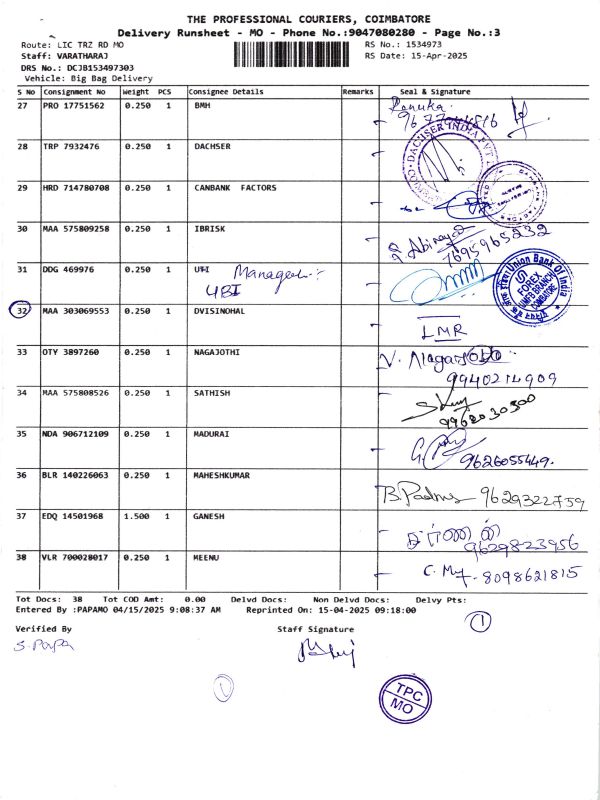 THE PROFESSIONAL COURIERS, COIMBATORE
Delivery Runsheet - MO - Phone No.:9047080280 - Page No.:3
Route: LIC TRZ RD MO RS No.: 1534973
Staff: VARATHARAJ RS Date: 15-Apr-2025
DRS No.: DCJB153497303
Vehicle: Big Bag Delivery
S No Consignment No Weight PCS Consignee Details Remarks Seal & Signature
27 PRO 17751562 0.250 1 BMH Renuka
28 TRP 7932476 0.250 1 DACHSER DACHSER INDIA PVT
29 HRD 714780708 0.250 1 CANBANK FACTORS
30 MAA 575809258 0.250 1 IBRISK Abinaya 7695965232
31 DDG 469976 0.250 1 UTI Manager
UBI Union Bank Of India FOREX COIMBATORE
32 MAA 303069553 0.250 1 DVISINOHAL LMR
33 OTY 3897260 0.250 1 NAGAJOTHI
9940214909
34 MAA 575808526 0.250 1 SATHISH
35 NDA 906712109 0.250 1 MADURAI 9626055449.
36 BLR 140226063 0.250 1 MAHESHKUMAR B. Padma 9629322759
37 EDQ 14501968 1.500 1 GANESH
9629823956
38 VLR 700028017 0.250 1 MEENU 8098621815
Tot Docs: 38 Tot COD Amt: 0.00 Delvd Docs: Non Delvd Docs: Delvy Pts:
Entered By :PAPAMO 04/15/2025 9:08:37 AM Reprinted On: 15-04-2025 09:18:00
1
Verified By Staff Signature
S. PAPA
TPC
MO